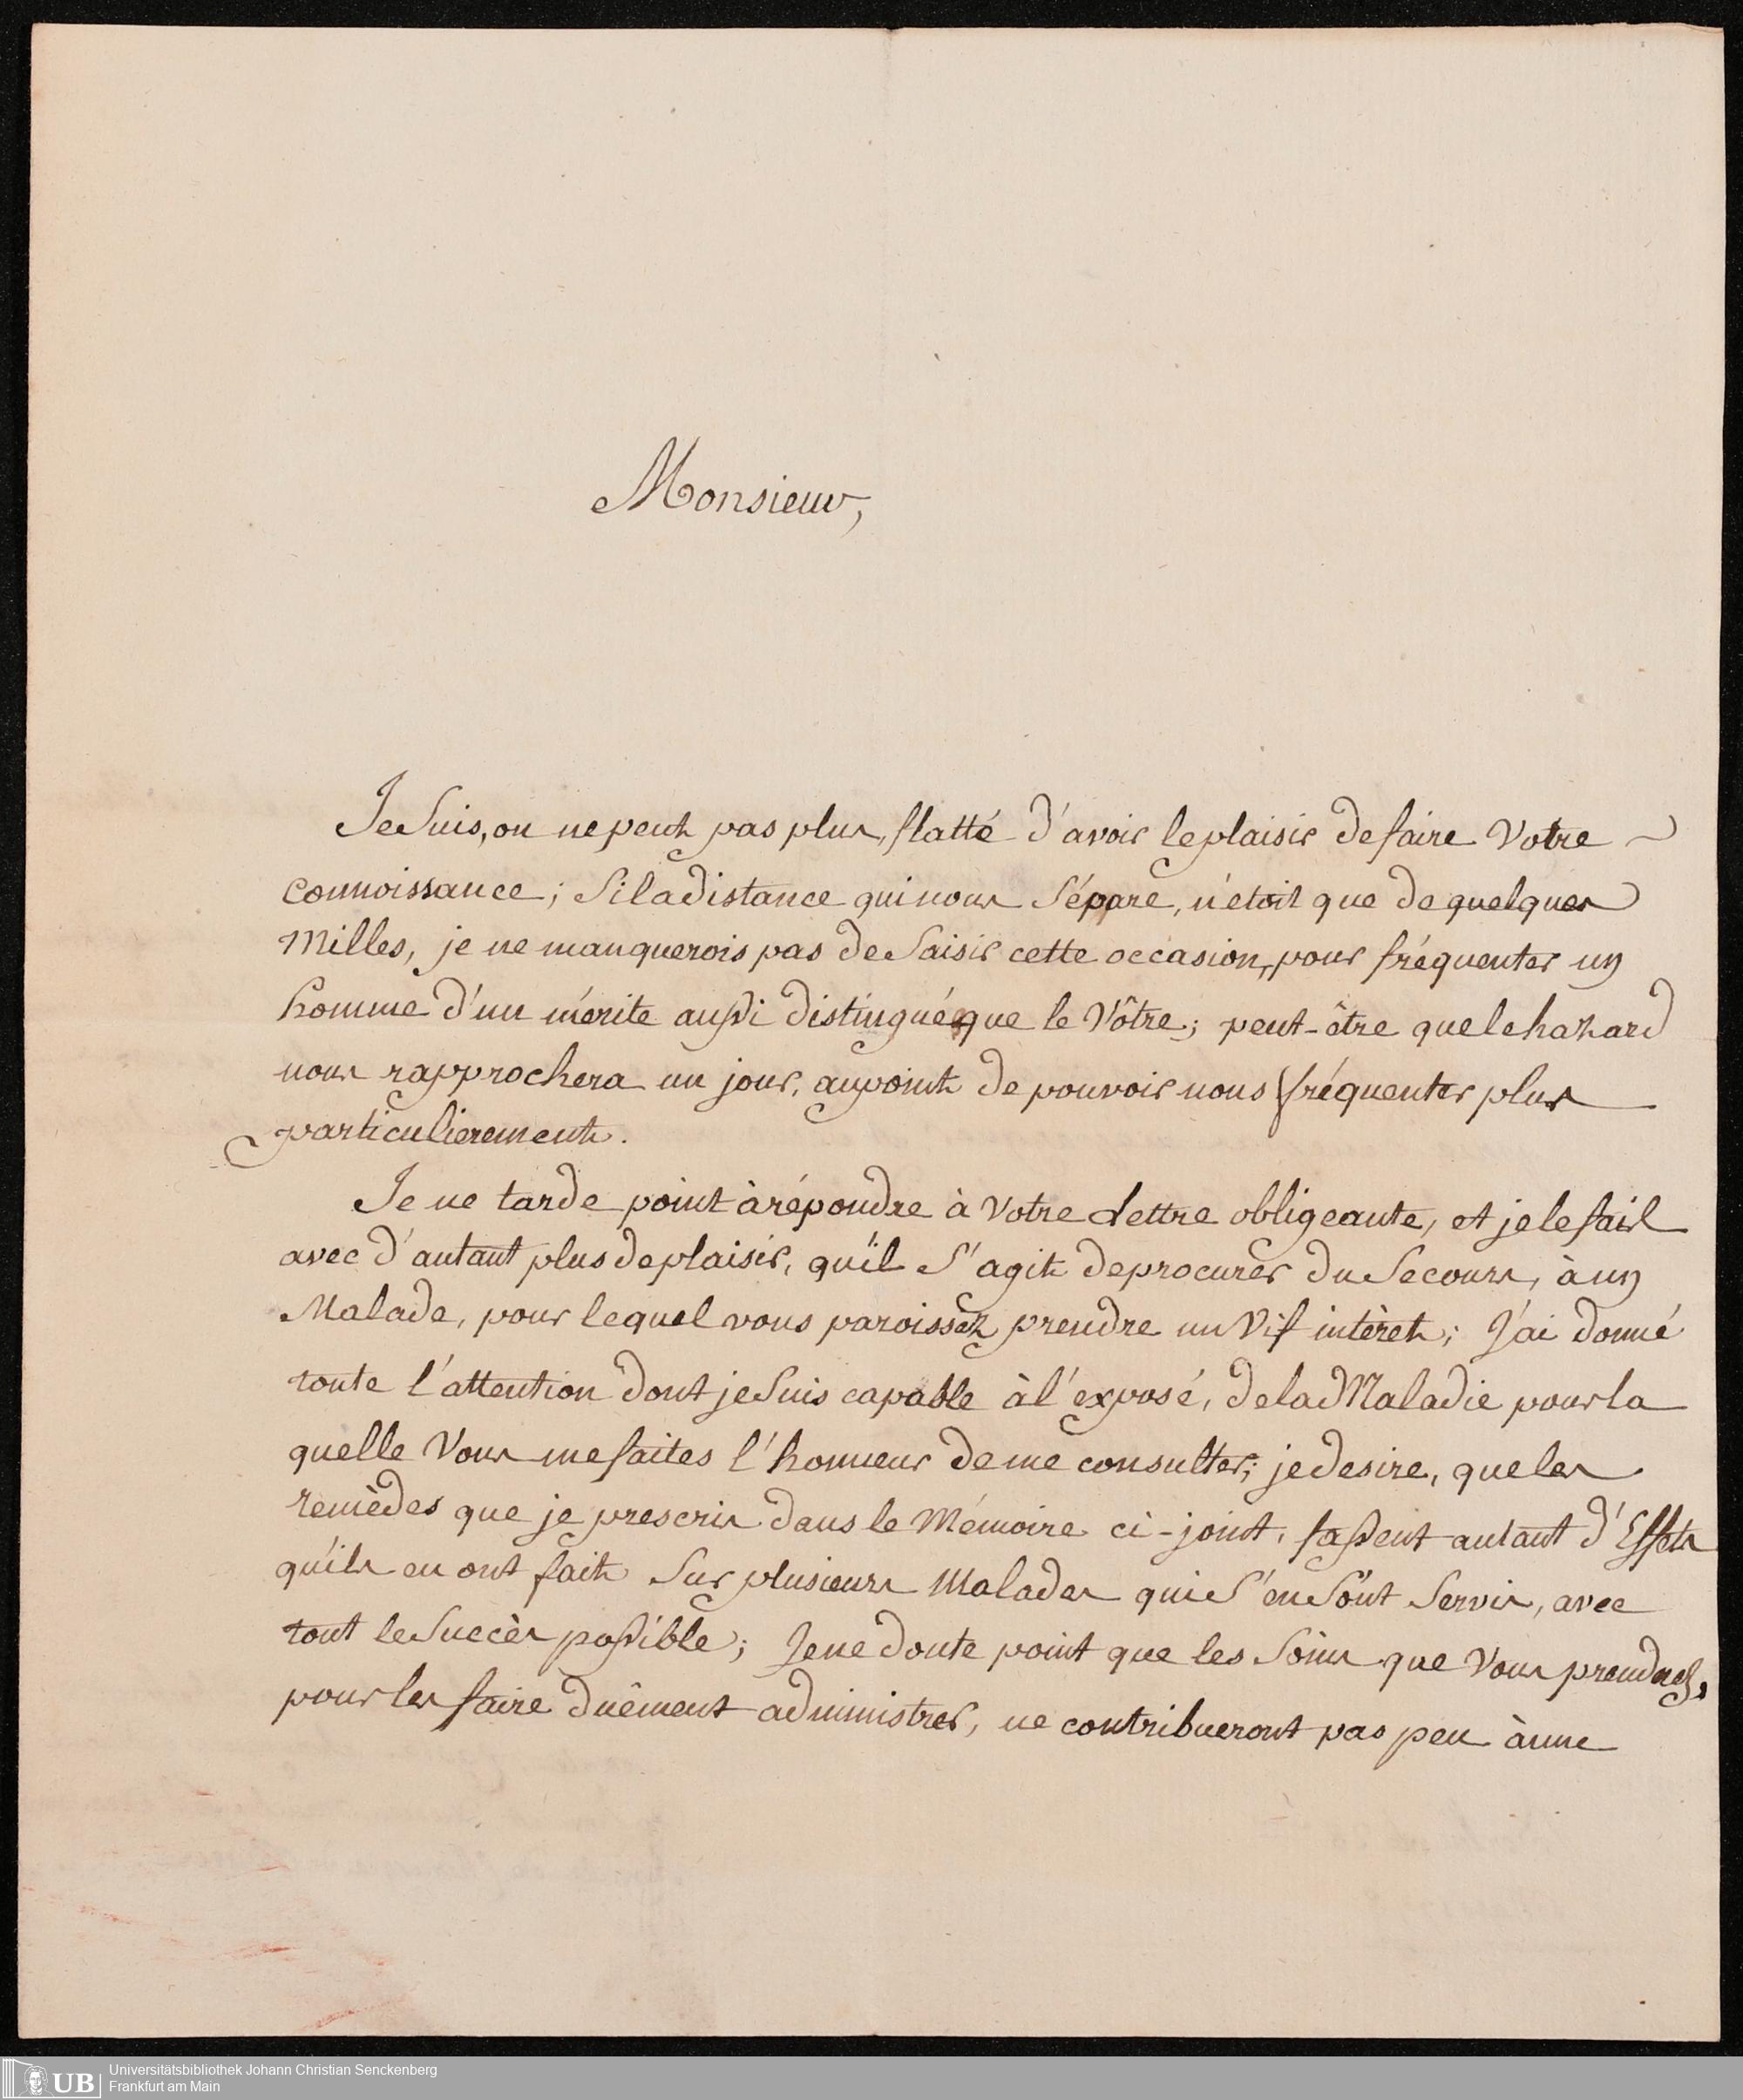 Monsieur,
Je Suis, on ne peut pas plus, flatté d'avoir le plaisir de faire Votre
Connoissance; Si la distance qui nous Sépare, n'etoit que de quelques
Milles, je ne manquerois pas de Saisir cette occasion, pour fréquenter un
homme d'un mérite aussi distingué que le Vôtre; peut-être que le hazard
nous rapprochera un jour, au point de pouvoir nous fréquenter plus
particulierement.
Je ne tarde point à répondre à Votre Lettre obligeante, et je le fais
avec d'autant plus de plaisir, qu'il S'agit de procurer du Secours, à un
Malade, pour lequel vous paroissez prendre un Vif intèret; J'ai donné
toute l'attention dont je Suis capable à l'exposé, de la Maladie pour la
quelle Vous me faites l'honneur de me consulter; je desire, que les
remèdes que je prescris dans le Mémoire ci-joint, fassent autant d'Effets
qu'ils en ont fait Sur plusieurs Malades qui S'en Sont Servis, avec
tout le Succès possible; Je ne doute point que les Soins que Vous prendrez,
pour les faire duëment administrer, ne contribueront pas peu à une
UB
Universitätsbibliothek Johann Christian Senckenberg
Frankfurt am Main